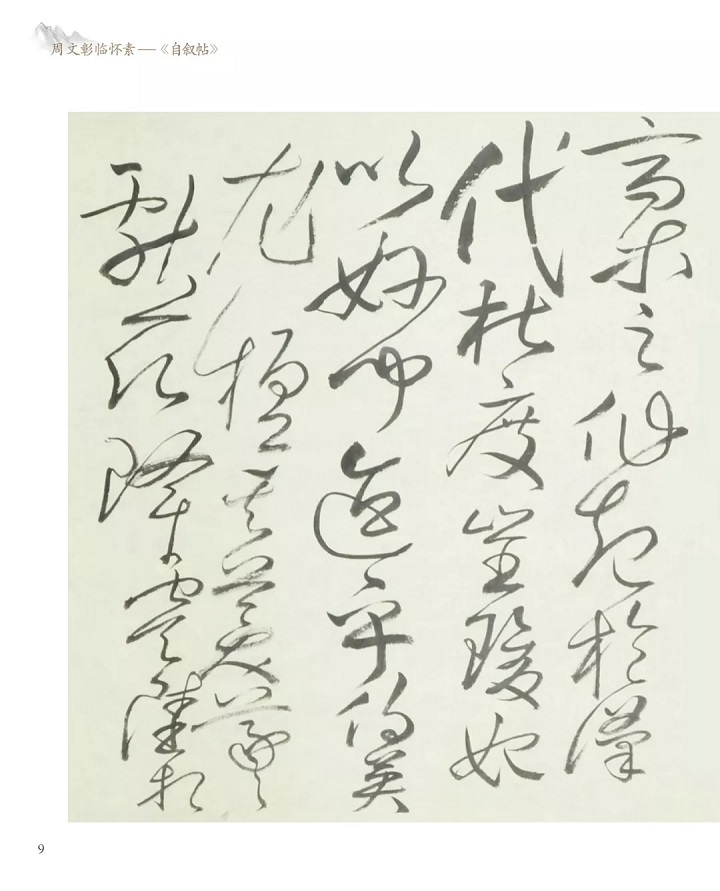 周文彰临怀素——《自叙帖》
槀之作起於漢
代杜度崔瑗始
以妙聞迨乎伯英
尤擅其美羲
獻茲降虞陸相
9